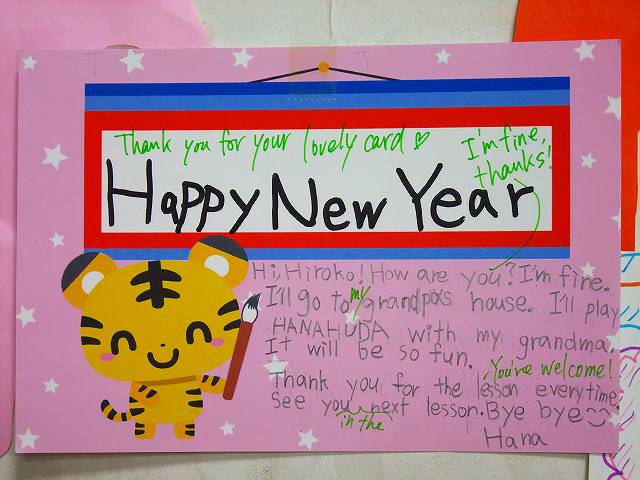 Thank you for your lovely card ♡
I'm fine,
thanks!
Happy New Year
Hi, Hiroko! How are you? I'm fine.
I'll go to my grandpa's house. I'll play
HANAHUDA with my grandma.
It will be so fun.
You're welcome!
Thank you for the lesson everytime.
See you next lesson. Bye bye
in the
Hana